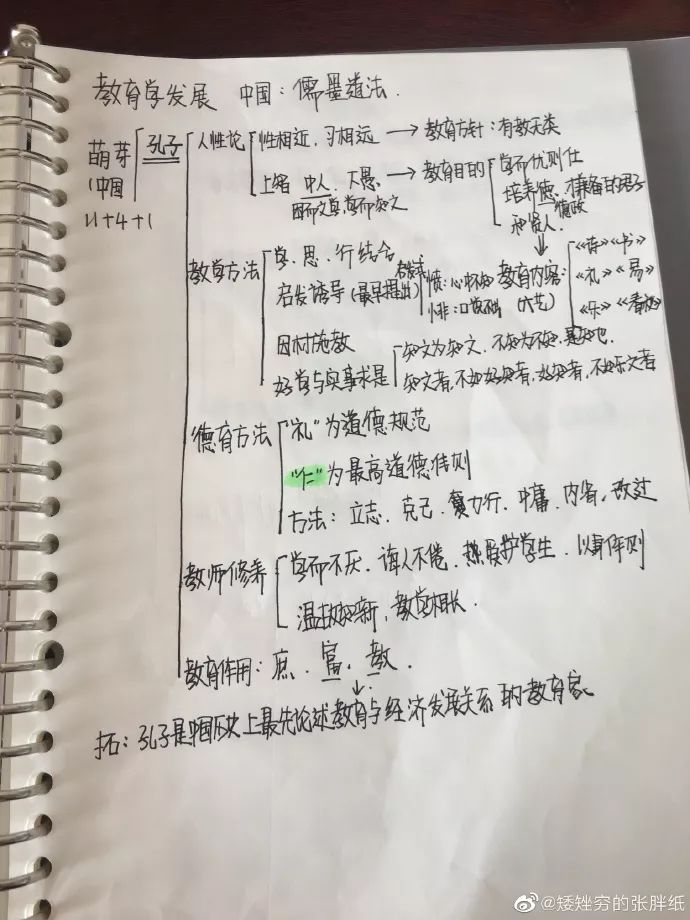 教育学发展 中国：儒墨道法.
萌芽 孔子 人性论 性相近，习相远 → 教育方针：有教无类
(中国 上智 中人、下愚 → 教育目的 学而优则仕
困而学之,学而知之 培养德才兼备的君子
11+4+1 和贤人 德政
教学方法 学、思、行结合
启发诱导(最早提出) 启发式 愤：心 悱：口 教育内容：(六艺) 《诗》《书》
《礼》《易》
《乐》《春秋》
因材施教
好学与实事求是 知之为知之，不知为不知，是知也.
知之者,不如好知者,好知者,不如乐之者
德育方法 "礼"为道德规范
"仁"为最高道德准则
方法：立志、克己、力行、中庸、内省、改过
教师修养 学而不厌、诲人不倦、热爱护学生、以身作则
温故知新，教学相长.
教育作用：庶、富、教.
拓：孔子是中国历史上最先论述教育与经济发展关系的教育家
@矮矬穷的张胖纸